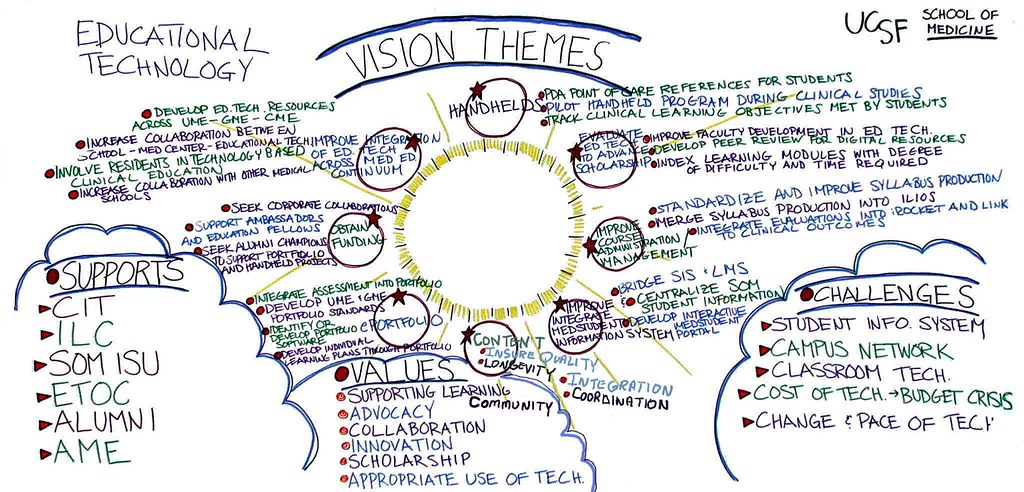 EDUCATIONAL
TECHNOLOGY
VISION THEMES
UCSF
SCHOOL OF
MEDICINE
HANDHELDS
PDA POINT OF CARE REFERENCES FOR STUDENTS
PILOT HANDHELD PROGRAM DURING CLINICAL STUDIES
TRACK CLINICAL LEARNING OBJECTIVES MET BY STUDENTS
EVALUATE
ED TECH
TO ADVANCE
SCHOLARSHIP
IMPROVE FACULTY DEVELOPMENT IN ED TECH.
DEVELOP PEER REVIEW FOR DIGITAL RESOURCES
INDEX LEARNING MODULES WITH DEGREE
OF DIFFICULTY AND TIME REQUIRED
IMPROVE
COURSE
ADMINISTRATION/
MANAGEMENT
STANDARDIZE AND IMPROVE SYLLABUS PRODUCTION
MERGE SYLLABUS PRODUCTION INTO ILIOS
INTEGRATE EVALUATIONS INTO iROCKET AND LINK
TO CLINICAL OUTCOMES
IMPROVE
INTEGRATE
MEDSTUDENT
INFORMATION SYSTEM
BRIDGE SIS & LMS
CENTRALIZE SOM
STUDENT INFORMATION
DEVELOP INTERACTIVE
MEDSTUDENT
PORTAL
CONTENT
INSURE QUALITY
LONGEVITY
INTEGRATION
COORDINATION
COMMUNITY
ePORTFOLIO
INTEGRATE ASSESSMENT INTO PORTFOLIO
DEVELOP UME & GME
PORTFOLIO STANDARDS
IDENTIFY OR
DEVELOP PORTFOLIO
SOFTWARE
DEVELOP INDIVIDUAL
LEARNING PLANS THROUGH PORTFOLIO
OBTAIN
FUNDING
SEEK CORPORATE COLLABORATIONS
SUPPORT AMBASSADORS
AND EDUCATION FELLOWS
SEEK ALUMNI CHAMPIONS
TO SUPPORT PORTFOLIO
AND HANDHELD PROJECTS
IMPROVE INTEGRATION
OF ED. TECH
ACROSS MED ED.
CONTINUUM
DEVELOP ED. TECH. RESOURCES
ACROSS UME-GME-CME
INCREASE COLLABORATION BETWEEN
SCHOOL-MED CENTER-EDUCATIONAL TECH
INVOLVE RESIDENTS IN TECHNOLOGY BASED
CLINICAL EDUCATION
INCREASE COLLABORATION WITH OTHER MEDICAL
SCHOOLS
SUPPORTS
CIT
ILC
SOM ISU
ETOC
ALUMNI
AME
VALUES
SUPPORTING LEARNING
ADVOCACY
COLLABORATION
INNOVATION
SCHOLARSHIP
APPROPRIATE USE OF TECH.
CHALLENGES
STUDENT INFO. SYSTEM
CAMPUS NETWORK
CLASSROOM TECH.
COST OF TECH. → BUDGET CRISIS
CHANGE & PACE OF TECH